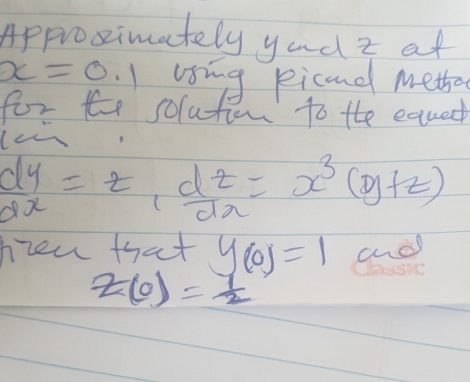 Approximately y and z at
x = 0.1 using Picard Method
for the solution to the equat
ion .
dy/dx = z , dz/dx = x³ (y+z)
given that y(0) = 1 and
Classic
z(0) = 1/2